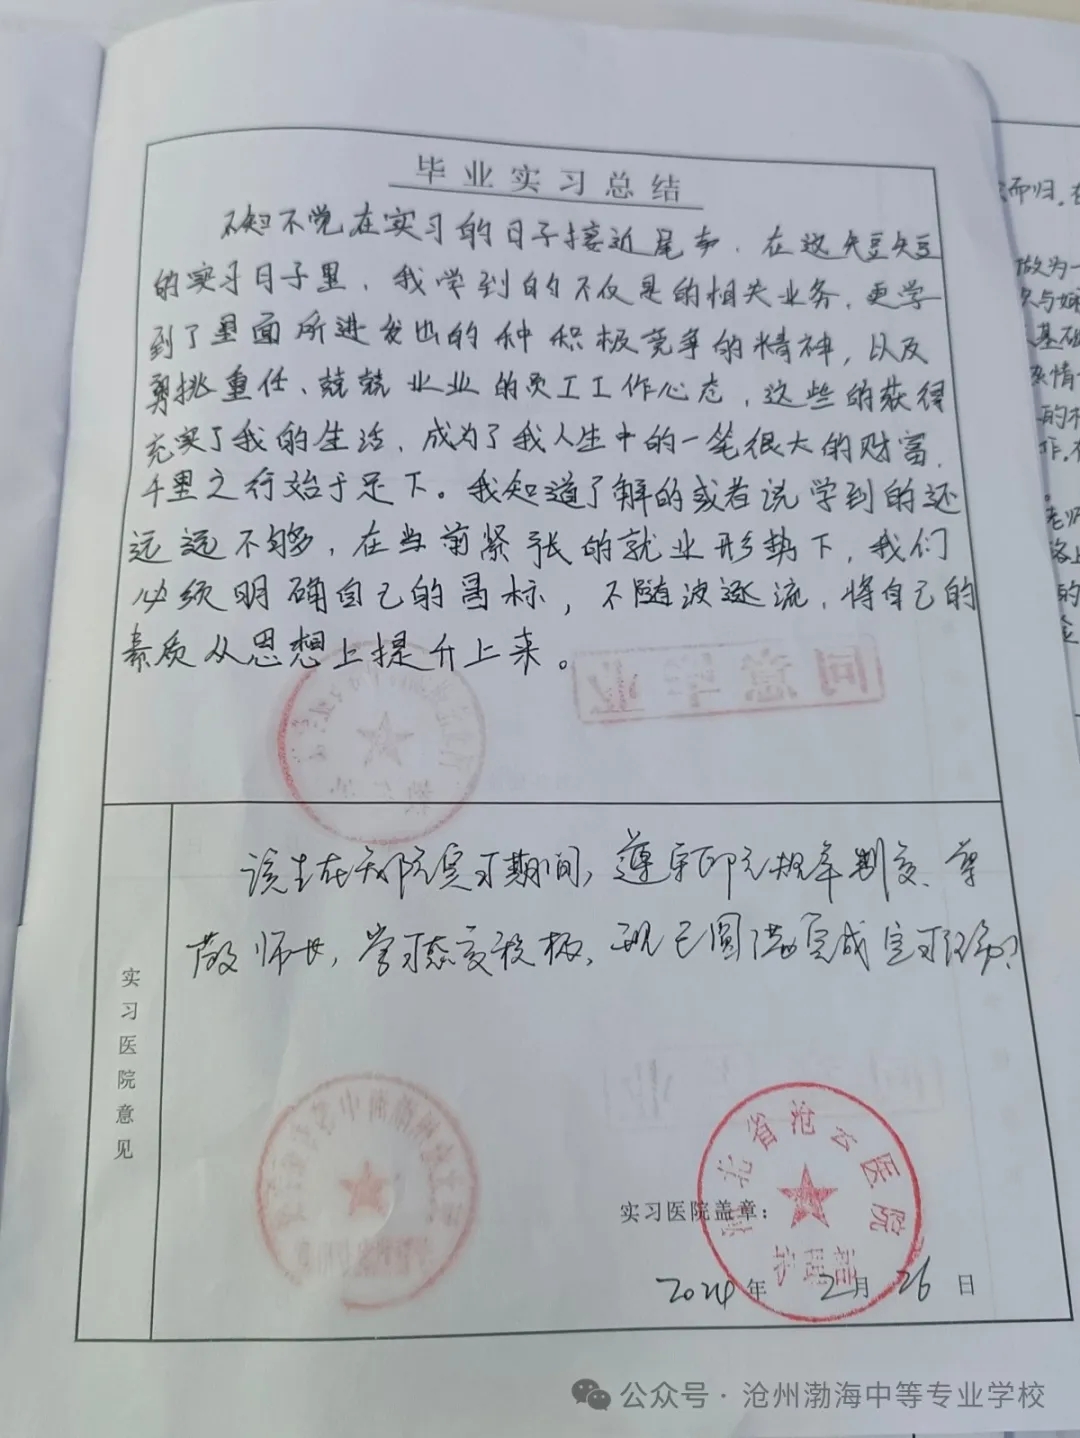 毕业实习总结
不知不觉在实习的日子接近尾声，在这短短
的实习日子里，我学到的不仅是的相关业务，更学
到了里面所迸发出的种积极竞争的精神，以及
勇挑重任、兢兢业业的员工工作心态，这些的获得
充实了我的生活，成为了我人生中的一笔很大的财富，
千里之行始于足下。我知道了解的或者说学到的还
远远不够，在当前紧张的就业形势下，我们
必须明确自己的目标，不随波逐流，将自己的
素质从思想上提升上来。
同意毕业
实习医院意见
该生在我院实习期间，遵守医院规章制度、尊
敬师长，学习态度积极，现已圆满完成实习任务！
河北省沧云医院
护理部
实习医院盖章：
2024年2月26日
而归，在
做为一
基础
的
公众号·沧州渤海中等专业学校